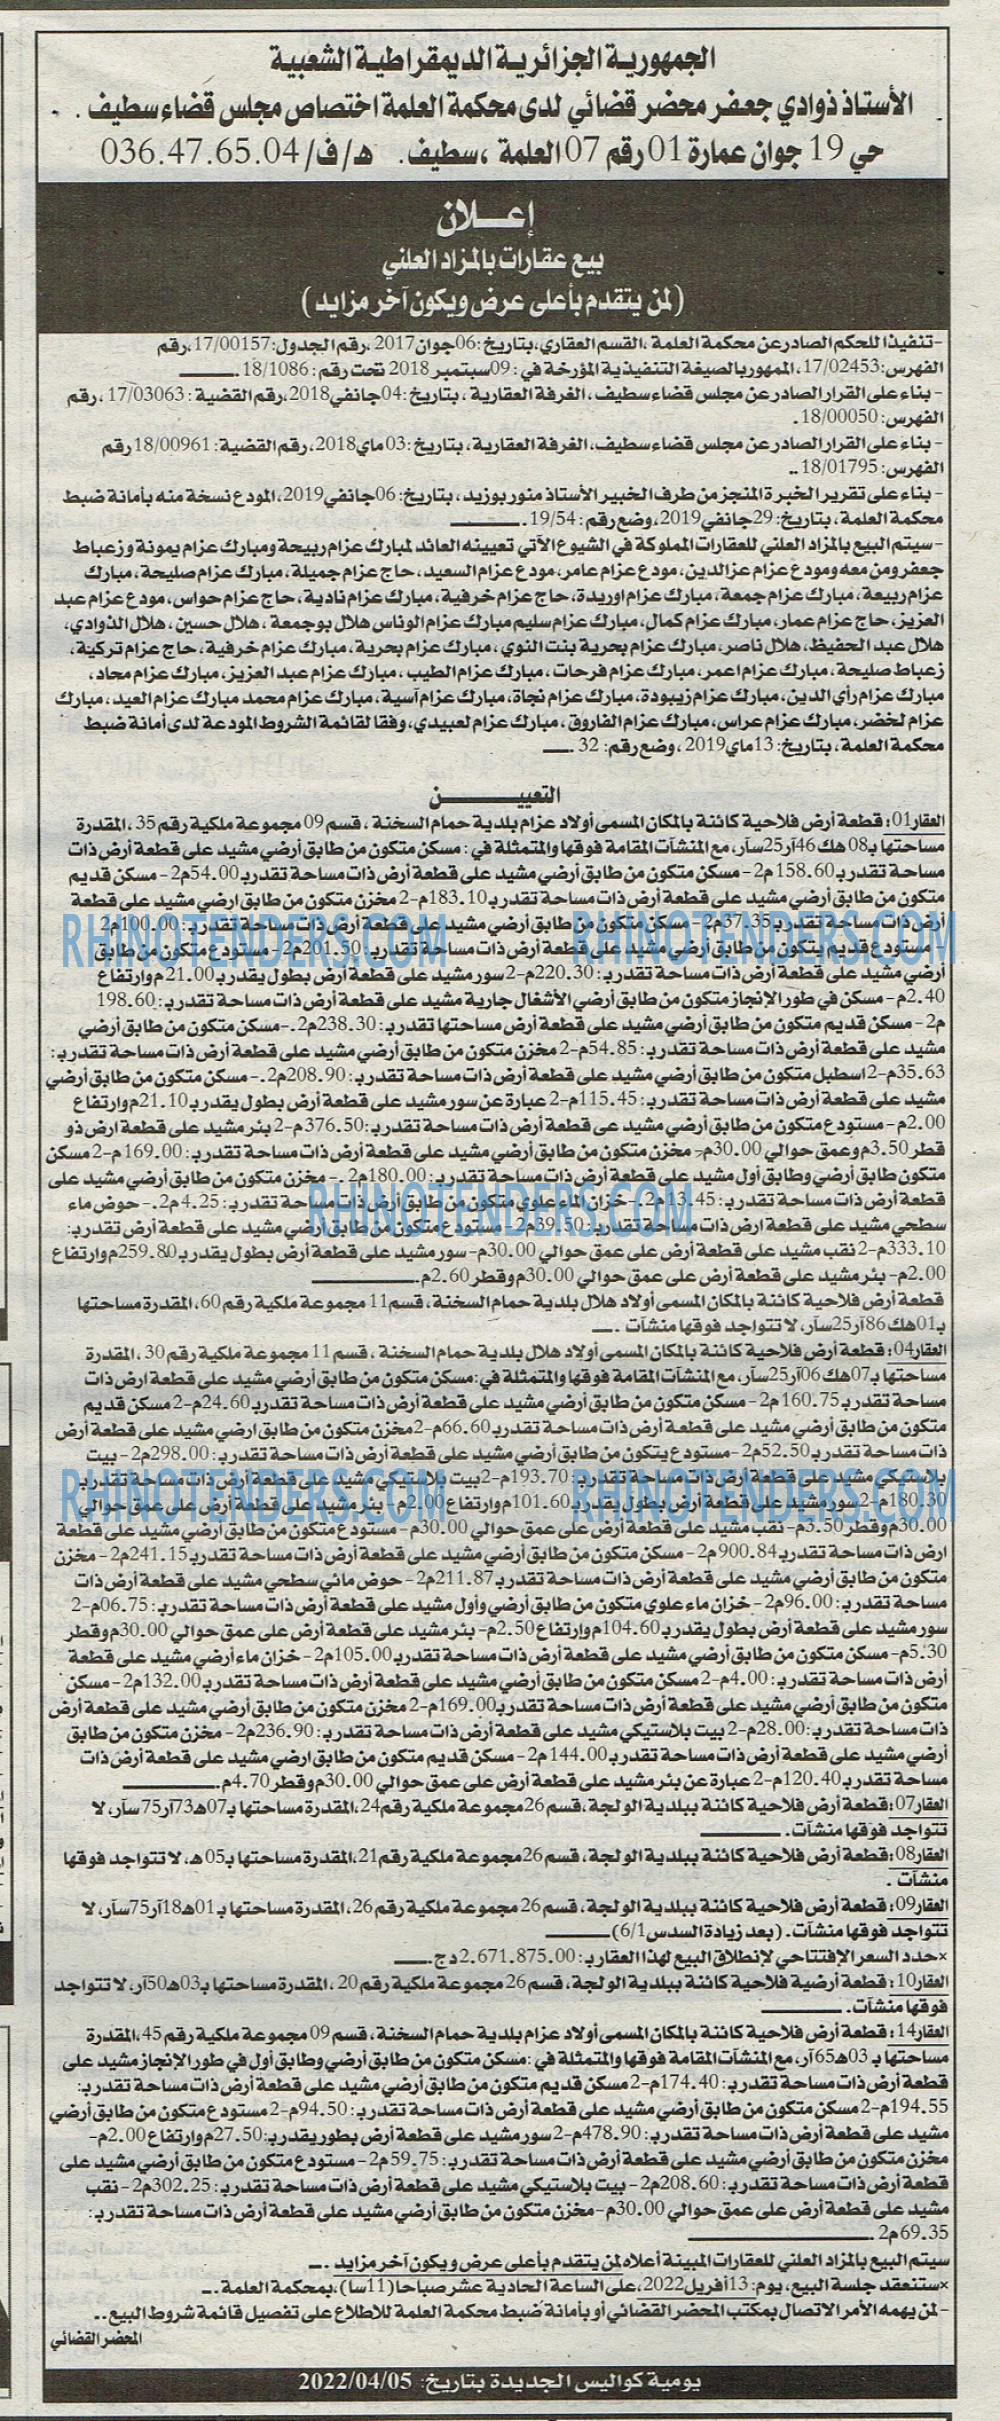 الجمهورية الجزائرية الديمقراطية الشعبية
الأستاذ ذوادي جعفر محضر قضائي لدى محكمة العلمة اختصاص مجلس قضاء سطيف .
حي 19 جوان عمارة 01 رقم 07 العلمة ،سطيف. هـ/ف/ 036.47.65.04
إعـــلان
بيع عقارات بالمزاد العلني
(لمن يتقدم بأعلى عرض ويكون آخر مزايد )
-تنفيذا للحكم الصادر عن محكمة العلمة ،القسم العقاري،بتاريخ :06جوان2017 ،رقم الجدول: 17/00157، رقم
الفهرس:17/02453، الممهور بالصيغة التنفيذية المؤرخة في : 09سبتمبر 2018 تحت رقم : 18/1086.
- بناء على القرار الصادر عن مجلس قضاء سطيف ، الغرفة العقارية ، بتاريخ :04جانفي2018،رقم القضية : 17/03063 ، رقم
الفهرس: 18/00050.
- بناء على القرار الصادر عن مجلس قضاء سطيف، الغرفة العقارية ، بتاريخ :03ماي2018، رقم القضية: 18/00961 رقم
الفهرس: 18/01795 ..
- بناء على تقرير الخبرة المنجز من طرف الخبير الأستاذ منور بوزيد ، بتاريخ : 06جانفي2019، المودع نسخة منه بأمانة ضبط
محكمة العلمة ، بتاريخ : 29جانفي2019،وضع رقم : 19/54 .
-سيتم البيع بالمزاد العلني للعقارات المملوكة في الشيوع الآتي تعيينه العائد لمبارك عزام ربيحة ومبارك عزام يمونة وزعباط
جعفر ومن معه ومودع عزام عزالدين، مودع عزام عامر، مودع عزام السعيد، حاج عزام جميلة، مبارك عزام صليحة، مبارك
عزام ربيعة، مبارك عزام جمعة، مبارك عزام اوريدة، حاج عزام خرفية، مبارك عزام نادية، حاج عزام حواس، مودع عزام عبد
العزيز، حاج عزام عمار، مبارك عزام كمال، مبارك عزام سليم مبارك عزام الوناس هلال بوجمعة ، هلال حسين ، هلال الذوادي،
هلال عبد الحفيظ، هلال ناصر، مبارك عزام بحرية بنت النوي ، مبارك عزام بحرية ، مبارك عزام خرفية ، حاج عزام تركية ،
زعباط صليحة ، مبارك عزام اعمر، مبارك عزام فرحات ، مبارك عزام الطيب ، مبارك عزام عبد العزيز، مبارك عزام محاد،
مبارك عزام رأي الدين، مبارك عزام زيبودة، مبارك عزام نجاة، مبارك عزام آسية، مبارك عزام محمد مبارك عزام العيد، مبارك
عزام لخضر، مبارك عزام عراس، مبارك عزام الفاروق ، مبارك عزام لعبيدي، وفقا لقائمة الشروط المودعة لدى أمانة ضبط
محكمة العلمة ، بتاريخ: 13ماي2019 ، وضع رقم : 32 .
التعييـــــــــن
العقار01: قطعة أرض فلاحية كائنة بالمكان المسمى أولاد عزام بلدية حمام السخنة ، قسم 09 مجموعة ملكية رقم 35 ،المقدرة
مساحتها بـ08هك 46آر25سآر، مع المنشآت المقامة فوقها والمتمثلة في : مسكن متكون من طابق أرضي مشيد على قطعة أرض ذات
مساحة تقدر بـ 158.60م2 - مسكن متكون من طابق أرضي مشيد على قطعة أرض ذات مساحة تقدر بـ54.00م2 - مسكن قديم
متكون من طابق أرضي مشيد على قطعة أرض ذات مساحة تقدر بـ: 183.10م-2 مخزن متكون من طابق ارضي مشيد على قطعة
أرض ذات مساحة تقدر بـ57.35م2 - مسكن متكون من طابق أرضي مشيد على قطعة أرض ذات مساحة تقدر بـ: 100.00م2
- مستودع قديم يتكون من طابق أرضي مشيد على قطعة أرض ذات مساحة تقدر بـ: 201.50م2 - مستودع متكون من طابق
أرضي مشيد على قطعة أرض ذات مساحة تقدر بـ: 220.30م-2 سور مشيد على قطعة أرض بطول يقدر بـ21.00م وارتفاع
2.40م - مسكن في طور الإنجاز متكون من طابق أرضي الأشغال جارية مشيد على قطعة أرض ذات مساحة تقدر بـ: 198.60
م2 - مسكن قديم متكون من طابق أرضي مشيد على قطعة أرض مساحتها تقدر بـ: 238.30م2. -مسكن متكون من طابق أرضي
مشيد على قطعة أرض ذات مساحة تقدر بـ: 54.85م-2 مخزن متكون من طابق أرضي مشيد على قطعة أرض ذات مساحة تقدر بـ:
35.63م-2 اسطبل متكون من طابق أرضي مشيد على قطعة أرض ذات مساحة تقدر بـ: 208.90م2. -مسكن متكون من طابق أرضي
مشيد على قطعة أرض ذات مساحة تقدر بـ: 115.45م-2 عبارة عن سور مشيد على قطعة أرض بطول يقدر بـ21.10م وارتفاع
2.00م - مستودع متكون من طابق أرضي مشيد عى قطعة أرض ذات مساحة تقدر بـ: 376.50م-2 بئر مشيد على قطعة ارض ذو
قطر 3.50م وعمق حوالي 30.00م- مخزن متكون من طابق أرضي مشيد على قطعة أرض ذات مساحة تقدر بـ: 169.00م-2 مسكن
متكون طابق أرضي وطابق أول مشيد على قطعة أرض ذات مساحة تقدر بـ: 180.00م2. - مخزن متكون من طابق أرضي مشيد على
قطعة أرض ذات مساحة تقدر بـ: 13.45م2 - خزان الماء علوي متكون من طابق أرض ذات مساحة تقدر بـ: 4.25م2. - حوض ماء
سطحي مشيد على قطعة ارض ذات مساحة تقدر بـ: 39.50م2 - مستودع متكون من طابق أرضي مشيد على قطعة أرض تقدر بـ:
333.10م-2 نقب مشيد على قطعة أرض على عمق حوالي 30.00م- سور مشيد على قطعة أرض بطول يقدر بـ259.80م وارتفاع
2.00م - بئر مشيد على قطعة أرض على عمق حوالي 30.00م وقطر 2.60م.
قطعة أرض فلاحية كائنة بالمكان المسمى أولاد هلال بلدية حمام السخنة ، قسم 11 مجموعة ملكية رقم 60، المقدرة مساحتها
بـ01هك86آر25سآر، لا تتواجد فوقها منشآت .
العقار04: قطعة أرض فلاحية كائنة بالمكان المسمى أولاد هلال بلدية حمام السخنة ، قسم 11 مجموعة ملكية رقم 30 ، المقدرة
مساحتها بـ07هك06آر25سآر، مع المنشآت المقامة فوقها والمتمثلة في: مسكن متكون من طابق أرضي مشيد على قطعة ارض ذات
مساحة تقدر بـ160.75م2 - مسكن متكون من طابق أرضي مشيد على قطعة أرض ذات مساحة تقدر بـ24.60م-2 مسكن قديم
متكون من طابق أرضي مشيد على قطعة أرض ذات مساحة تقدر بـ66.60م-2مخزن متكون من طابق ارضي مشيد على قطعة أرض
ذات مساحة تقدر بـ52.50م2 - مستودع يتكون من طابق أرضي مشيد على قطعة أرض ذات مساحة تقدر بـ: 298.00م2 - بيت
بلاستيكي مشيد على قطعة أرض ذات مساحة تقدر بـ: 193.70م-2بيت بلاستيكي مشيد على قطعة أرض ذات مساحة تقدر بـ:
180.30م-2سور مشيد على قطعة أرض بطول يقدر بـ101.60م وارتفاع 2.00م - بئر مشيد على قطعة أرض على عمق حوالي
30.00م وقطر 3.50م- نقب مشيد على قطعة أرض على عمق حوالي 30.00م - مستودع متكون من طابق أرضي مشيد على قطعة
ارض ذات مساحة تقدر بـ900.84م2 - مسكن متكون من طابق أرضي مشيد على قطعة أرض ذات مساحة تقدر بـ: 241.15م2 - مخزن
متكون من طابق أرضي مشيد على قطعة أرض ذات مساحة تقدر بـ211.87م2 - حوض مائي سطحي مشيد على قطعة أرض ذات
مساحة تقدر بـ: 96.00م2 - خزان ماء علوي متكون من طابق أرضي وأول مشيد على قطعة أرض ذات مساحة تقدر بـ: 06.75م-2
سور مشيد على قطعة أرض بطول يقدر بـ104.60م وارتفاع 2.50م- بئر مشيد على قطعة أرض على عمق حوالي 30.00م وقطر
5.30م- مسكن متكون من طابق أرضي مشيد على قطعة أرض ذات مساحة تقدر بـ105.00م2 - خزان ماء أرضي مشيد على قطعة
أرض ذات مساحة تقدر بـ: 4.00م-2 مسكن متكون من طابق أرضي مشيد على قطعة أرض ذات مساحة تقدر بـ132.00م2 - مسكن
متكون من طابق أرضي مشيد على قطعة أرض ذات مساحة تقدر بـ169.00م-2 مخزن متكون من طابق أرضي مشيد على قطعة أرض
ذات مساحة تقدر بـ: 28.00م-2 بيت بلاستيكي مشيد على قطعة أرض ذات مساحة تقدر بـ: 236.90م2 - مخزن متكون من طابق
أرضي مشيد على قطعة أرض ذات مساحة تقدر بـ144.00م2 - مسكن قديم متكون من طابق ارضي مشيد على قطعة أرض ذات
مساحة تقدر بـ120.40م-2 عبارة عن بئر مشيد على قطعة أرض على عمق حوالي 30.00م وقطر 4.70م.
العقار07: قطعة أرض فلاحية كائنة ببلدية الولجة، قسم 26مجموعة ملكية رقم 24،المقدرة مساحتها بـ07هـ73آر75سآر، لا
تتواجد فوقها منشآت.
العقار08: قطعة أرض فلاحية كائنة ببلدية الولجة، قسم 26مجموعة ملكية رقم 21،المقدرة مساحتها بـ05هـ، لا تتواجد فوقها
منشآت .
العقار09: قطعة أرض فلاحية كائنة ببلدية الولجة، قسم 26 مجموعة ملكية رقم 26، المقدرة مساحتها بـ01هـ18آر75سآر، لا
تتواجد فوقها منشآت. (بعد زيادة السدس 6/1)
×حدد السعر الإفتتاحي لإنطلاق البيع لهذا العقار بـ: 2.671.875.00دج.
العقار10: قطعة أرضية فلاحية كائنة ببلدية الولجة، قسم 26 مجموعة ملكية رقم 20 ، المقدرة مساحتها بـ03هـ50آر، لا تتواجد
فوقها منشآت.
العقار14: قطعة أرض فلاحية كائنة بالمكان المسمى أولاد عزام بلدية حمام السخنة ، قسم 09 مجموعة ملكية رقم 45،المقدرة
مساحتها بـ 03هـ65آر، مع المنشآت المقامة فوقها والمتمثلة في :مسكن متكون من طابق أرضي وطابق أول في طور الإنجاز مشيد على
قطعة أرض ذات مساحة تقدر بـ: 174.40م-2 مسكن قديم متكون من طابق أرضي مشيد على قطعة أرض ذات مساحة تقدر بـ:
194.55م-2 مسكن متكون من طابق أرضي مشيد على قطعة أرض ذات مساحة تقدر بـ: 94.50م-2 مستودع متكون من طابق أرضي
مشيد على قطعة أرض ذات مساحة تقدر بـ: 478.90م-2 سور مشيد على قطعة أرض بطور يقدر بـ:27.50م وارتفاع 2.00م-
مخزن متكون من طابق أرضي مشيد على قطعة أرض ذات مساحة تقدر بـ: 59.75م2 - مستودع متكون من طابق أرضي مشيد على
قطعة أرض ذات مساحة تقدر بـ: 208.60م2 - بيت بلاستيكي مشيد على قطعة أرض ذات مساحة تقدر بـ: 302.25م2 - نقب
مشيد على قطعة أرض على عمق حوالي 30.00م -مخزن متكون من طابق أرضي مشيد على قطعة أرض ذات مساحة تقدر بـ:
69.35م2
سيتم البيع بالمزاد العلني للعقارات المبينة أعلاه لمن يتقدم بأعلى عرض ويكون آخر مزايد .
×ستنعقد جلسة البيع ، يوم : 13أفريل2022،على الساعة الحادية عشر صباحا (11سا)،بمحكمة العلمة .
-لمن يهمه الأمر الاتصال بمكتب المحضر القضائي أو بأمانة ضبط محكمة العلمة للاطلاع على تفصيل قائمة شروط البيع ..
المحضر القضائي
يومية كواليس الجديدة بتاريخ: 2022/04/05
RHINOTENDERS.COM
RHINOTENDERS.COM
RHINOTENDERS.COM
RHINOTENDERS.COM
RHINOTENDERS.COM